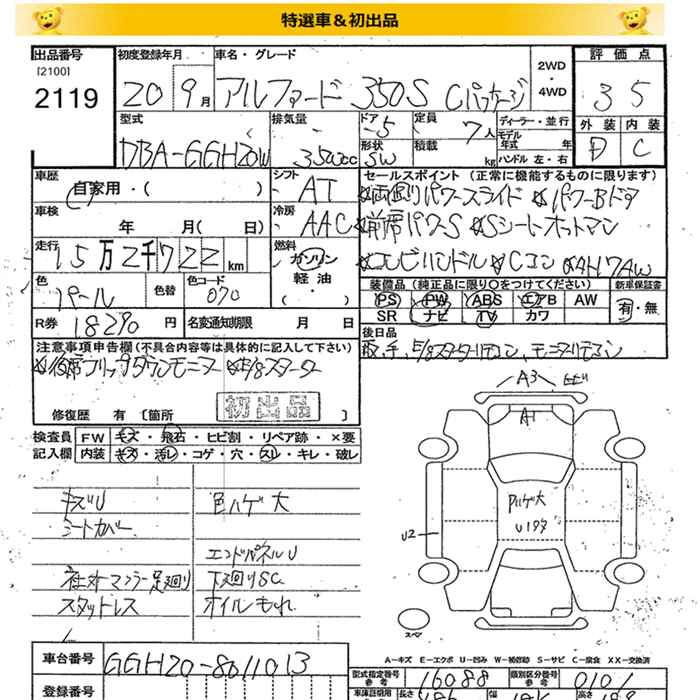 特選車＆初出品
出品番号 初度登録年月 車名・グレード 2WD・4WD 評価点
[2100]
2119 20 9月 アルファード 350S Cパッケージ 3.5
型式 排気量 ドア 5 定員 7人 ディーラー・並行 外装 内装
モデル年式 年
DBA-GGH20W 3500cc 形状 SW 積載 kg ハンドル 左・右 D C
車歴 自家用・( ) シフト AT セールスポイント (正常に機能するものに限ります)
☆両側パワースライド ☆パワーBドア
車検 年 月( 日) 冷房 AAC ☆前席パワーS ☆Sシートオットマン
走行 15万2千722km 燃料 ガソリン・軽油・( ) ☆コンビハンドル ☆Cコン ☆AH17AW
色 パール 色替 色コード 070 装備品 (純正品に限り○をつけてください) 新車保証書
PS PW ABS エアB AW 有・無
SR ナビ TV カワ
R券 18290円 名変通知期限 月 日 後日品
取,手,E/Gスターターリモコン,モニターリモコン
注意事項申告欄(不具合内容等は具体的に記入して下さい)
☆後席フリップダウンモニター ☆E/Gスターター
初出品
修復歴 有 [箇所 ]
検査員 FW キズ・飛石・ヒビ割・リペア跡・×要
記入欄 内装 キズ・汚レ・コゲ・穴・スレ・キレ・破レ
キズU 色ハゲ大
シートカバー
エンドパネルU
社外マフラー足廻り 下廻りSC
スタッドレス オイルもれ
A3
A1
ハゲ大
U2
スペア
A－キズ E－エクボ U－凹み W－補修跡 S－サビ C－腐食 XX－交換済
車台番号 GGH20-8011013 型式指定番号 参考 16088 類別区分番号 参考 0101
登録番号 車庫証明用 参考 長さ 幅 高さ